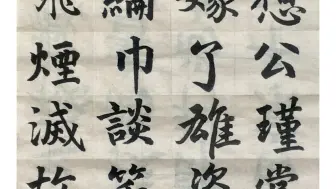 想公瑾當
嫁了雄姿
綸巾談笑
飛煙滅故